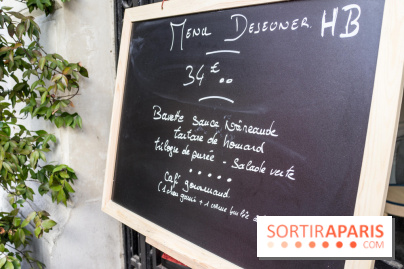 Menu Dejeuner HB
34 €
Bavette sauce
tartare de homard
trilogie de purée - Salade verte
Café gourmand
(1 chou garni + 1 creme brulée
SORTIRAPARIS
.COM